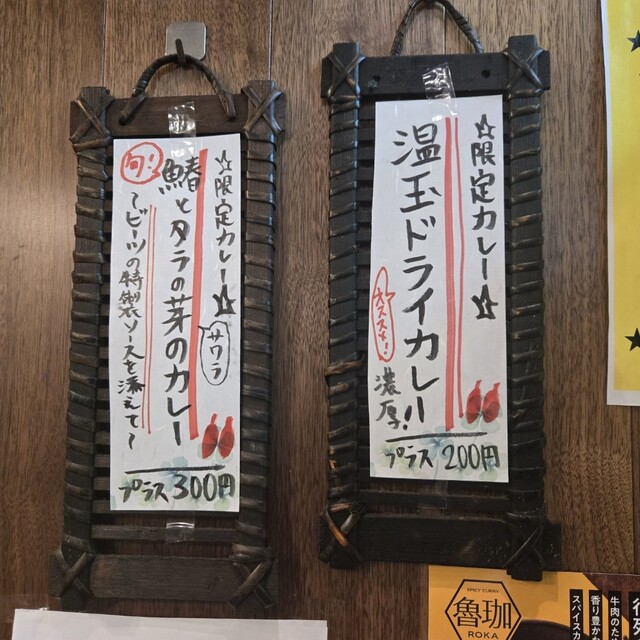 ☆限定カレー☆
温玉ドライカレー
オススメ!
濃厚!!
プラス 200円
☆限定カレー☆
鰆とタラの芽のカレー
サワラ
旬!
～ビーツの特製ソースを添えて～
プラス 300円
SPICY CURRY
魯珈
ROKA
牛肉のた
香り豊か
スパイスカ